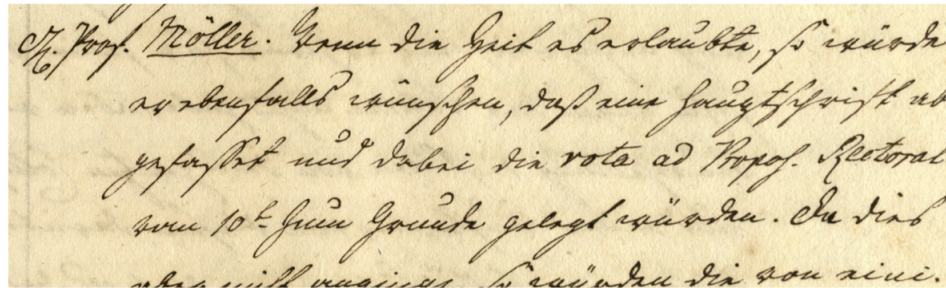 H. Prof. Möller. Wenn die Zeit es erlaubte, so würde
er ebenfalls wünschen, daß eine Hauptschrift ab
gefasset und dabei die vota ad Propos. Rectoral
vom 10t zum Grunde gelegt würden. Da dies
aber nicht anginge, so würden die von eini-